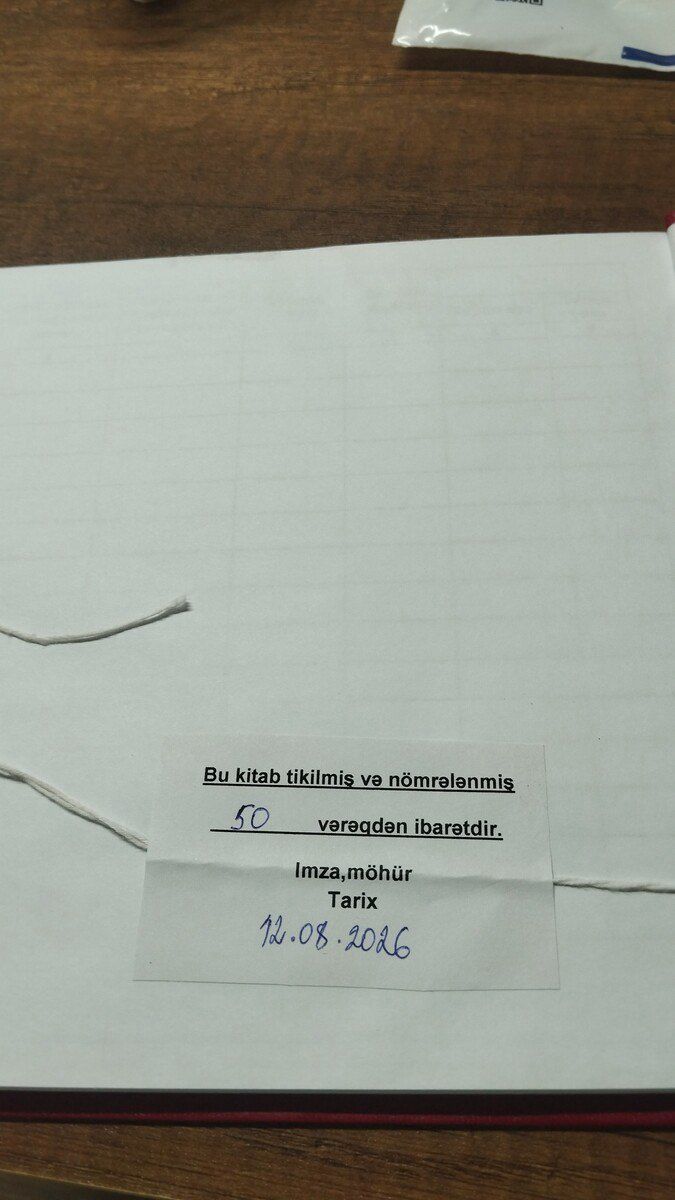 Bu kitab tikilmiş və nömrələnmiş
50 vərəqdən ibarətdir.
Imza,möhür
Tarix
12.08.2026